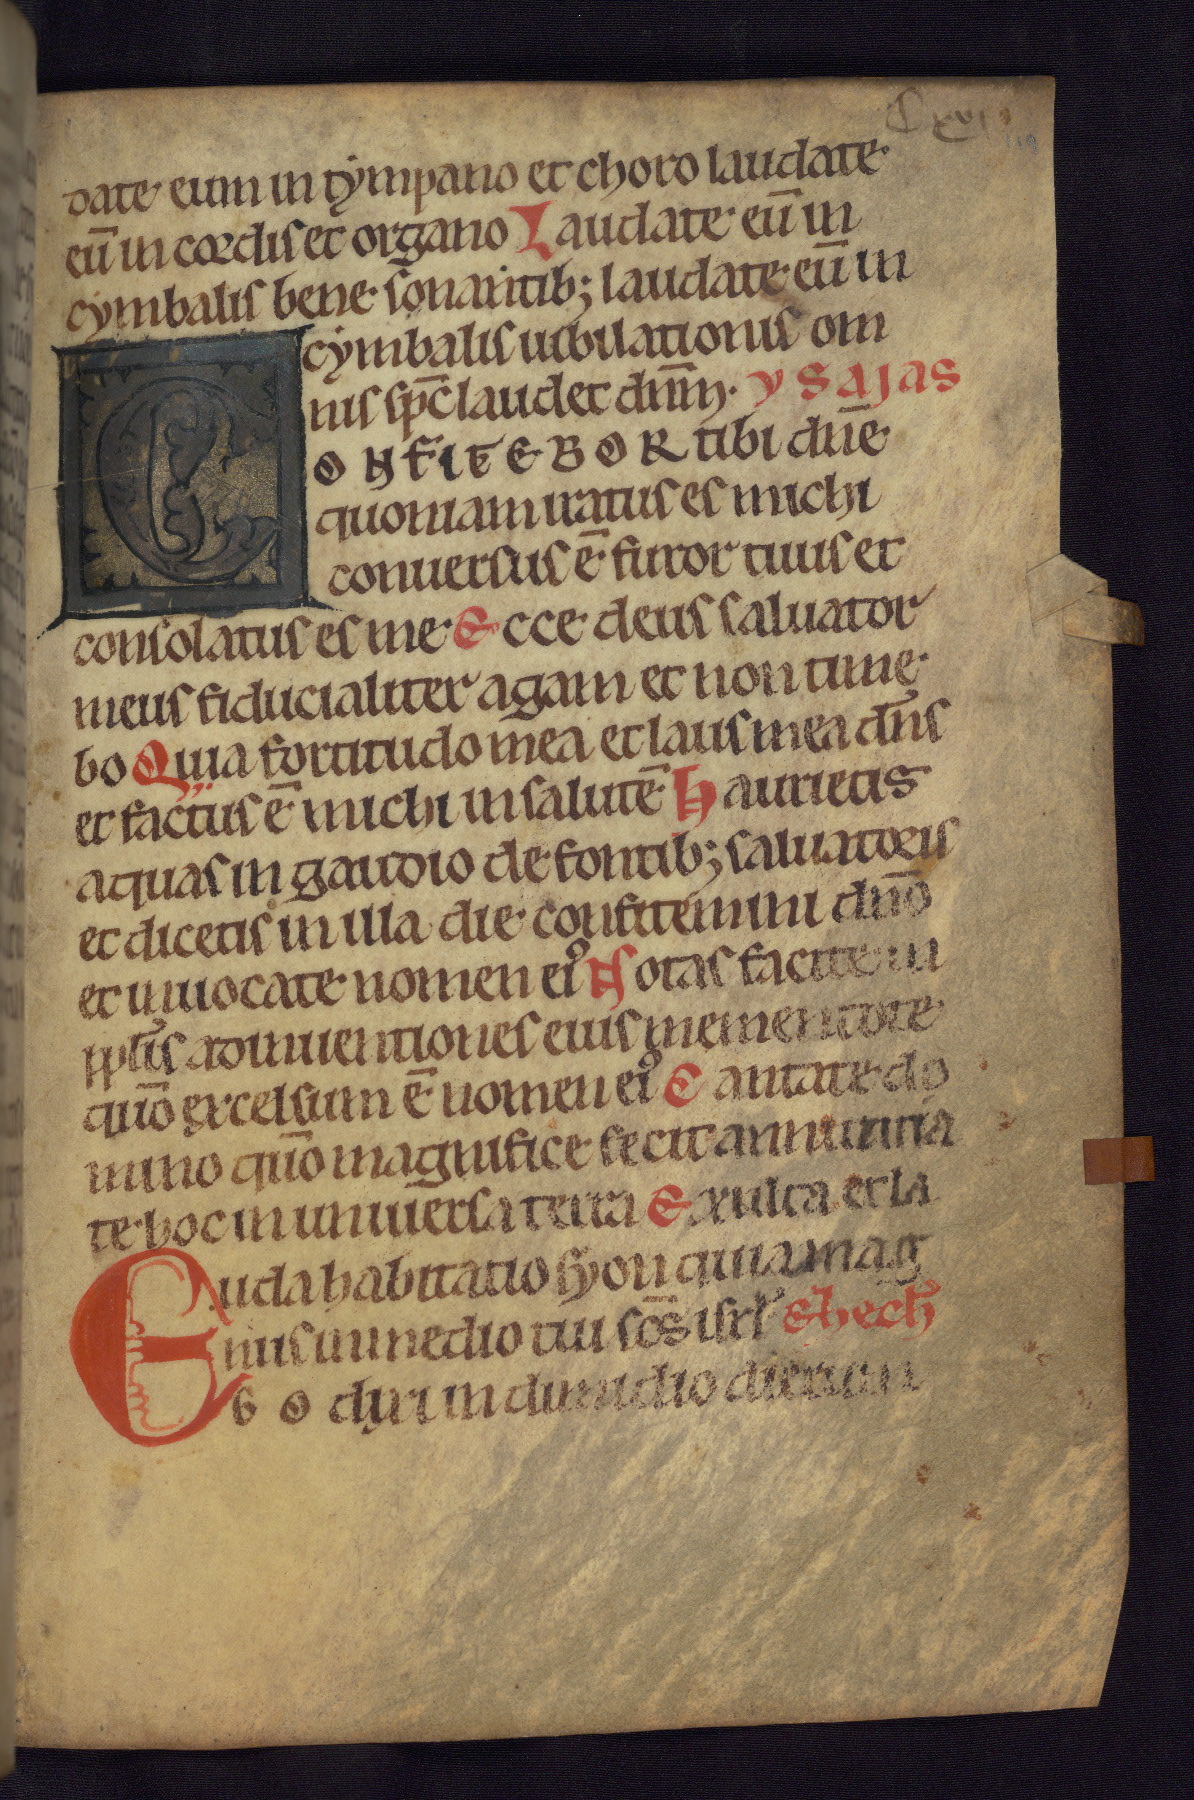 date eum in tympano et choro laudate
eū in cordis et organo Laudate eū in
cymbalis bene sonantib; laudate eū in
cymbalis iubilationis om
nis sp̄c laudet dn̄m. ysajas
CONFITEBOR tibi dn̄e
quoniam iratus es michi
conuersus ē furor tuus et
consolatus es me Ecce deus saluator
meus fiducialiter agam et non time
bo Quia fortitudo mea et laus mea dn̄s
et factus ē michi in salutē Haurietis
aquas in gaudio de fontib; saluatoris
et dicetis in illa die confitemini dn̄o
et inuocate nomen ei⁹ Notas facite in
ppl̄is adinuentiones eius mementote
quō excelsum ē nomen ei⁹ Cantate do
mino quō magnifice fecit annuntia
te hoc in uniuersa terra Exulta et la
uda habitatio syon quia mag
nus in medio tui sc̄s isrl̄ ezhech̄
EGO dixi in dimidio dierum